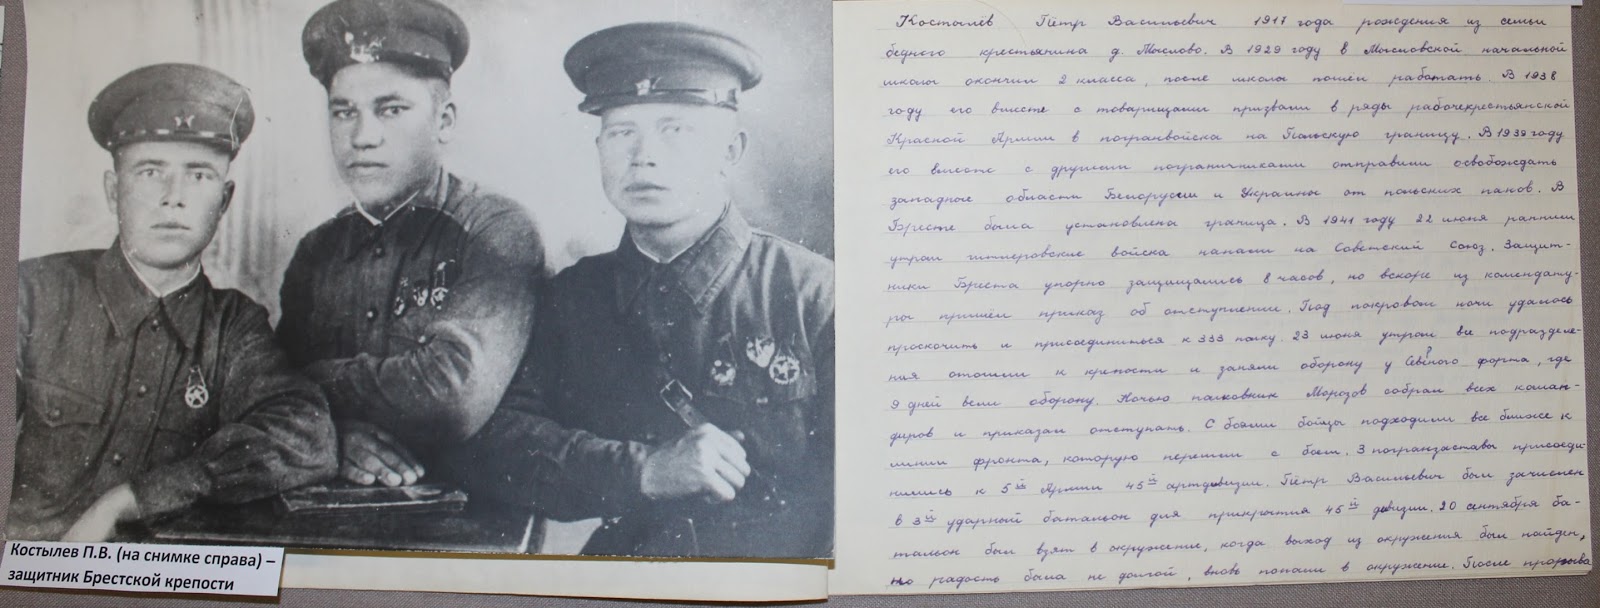 Костылев П.В. (на снимке справа) –
защитник Брестской крепости
Костылёв Пётр Васильевич 1917 года рождения из семьи
бедного крестьянина д. Мыслово. В 1929 году в Мысловской начальной
школы окончил 2 класса, после школы пошёл работать. В 1938
году его вместе с товарищами призвали в ряды рабочекрестьянской
Красной Армии в погранвойска на Польскую границу. В 1939 году
его вместе с другими пограничниками отправили освобождать
западные области Белоруссии и Украины от польских панов. В
Бресте была установлена граница. В 1941 году 22 июня ранним
утром гитлеровские войска напали на Советский Союз. Защит-
ники Бреста упорно защищались 8 часов, но вскоре из комендату-
ры пришёл приказ об отступлении. Под покровом ночи удалось
проскочить и присоединиться к 333 полку. 23 июня утром все подразделе-
ния отошли к крепости и заняли оборону у Северного форта, где
9 дней вели оборону. Ночью полковник Морозов собрал всех коман-
диров и приказал отступать. С боями бойцы подходили все ближе к
линии фронта, которую перешли с боем. 3 погранзаставы присоеди-
нились к 5й Армии 45й артдивизии. Пётр Васильевич был зачислен
в 3й ударный батальон для прикрытия 45й дивизии. 20 сентября ба-
тальон был взят в окружение, когда выход из окружения был найден,
но радость была не долгой, вновь попали в окружение. После прорыва